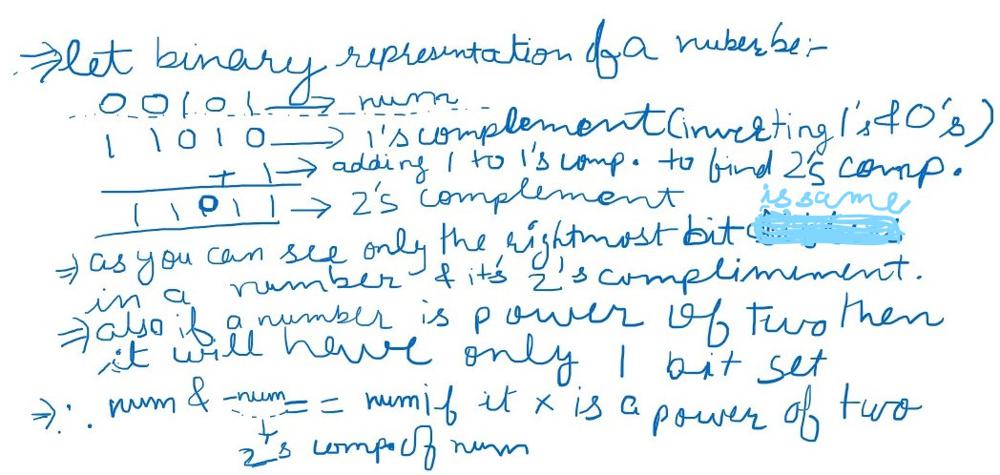 ⇒ let binary representation of a nuber be:-
0 0 1 0 1 → num
1 1 0 1 0 → 1's complement (inverting 1's & 0's)
+ 1 → adding 1 to 1's comp. to find 2's comp.
1 1 0 1 1 → 2's complement
⇒ as you can see only the rightmost bit is same
in a number & it's 2's complimement.
⇒ also if a number is power of two then
it will have only 1 bit set
⇒ ∴ num & -num == num if it x is a power of two
2's comp. of num